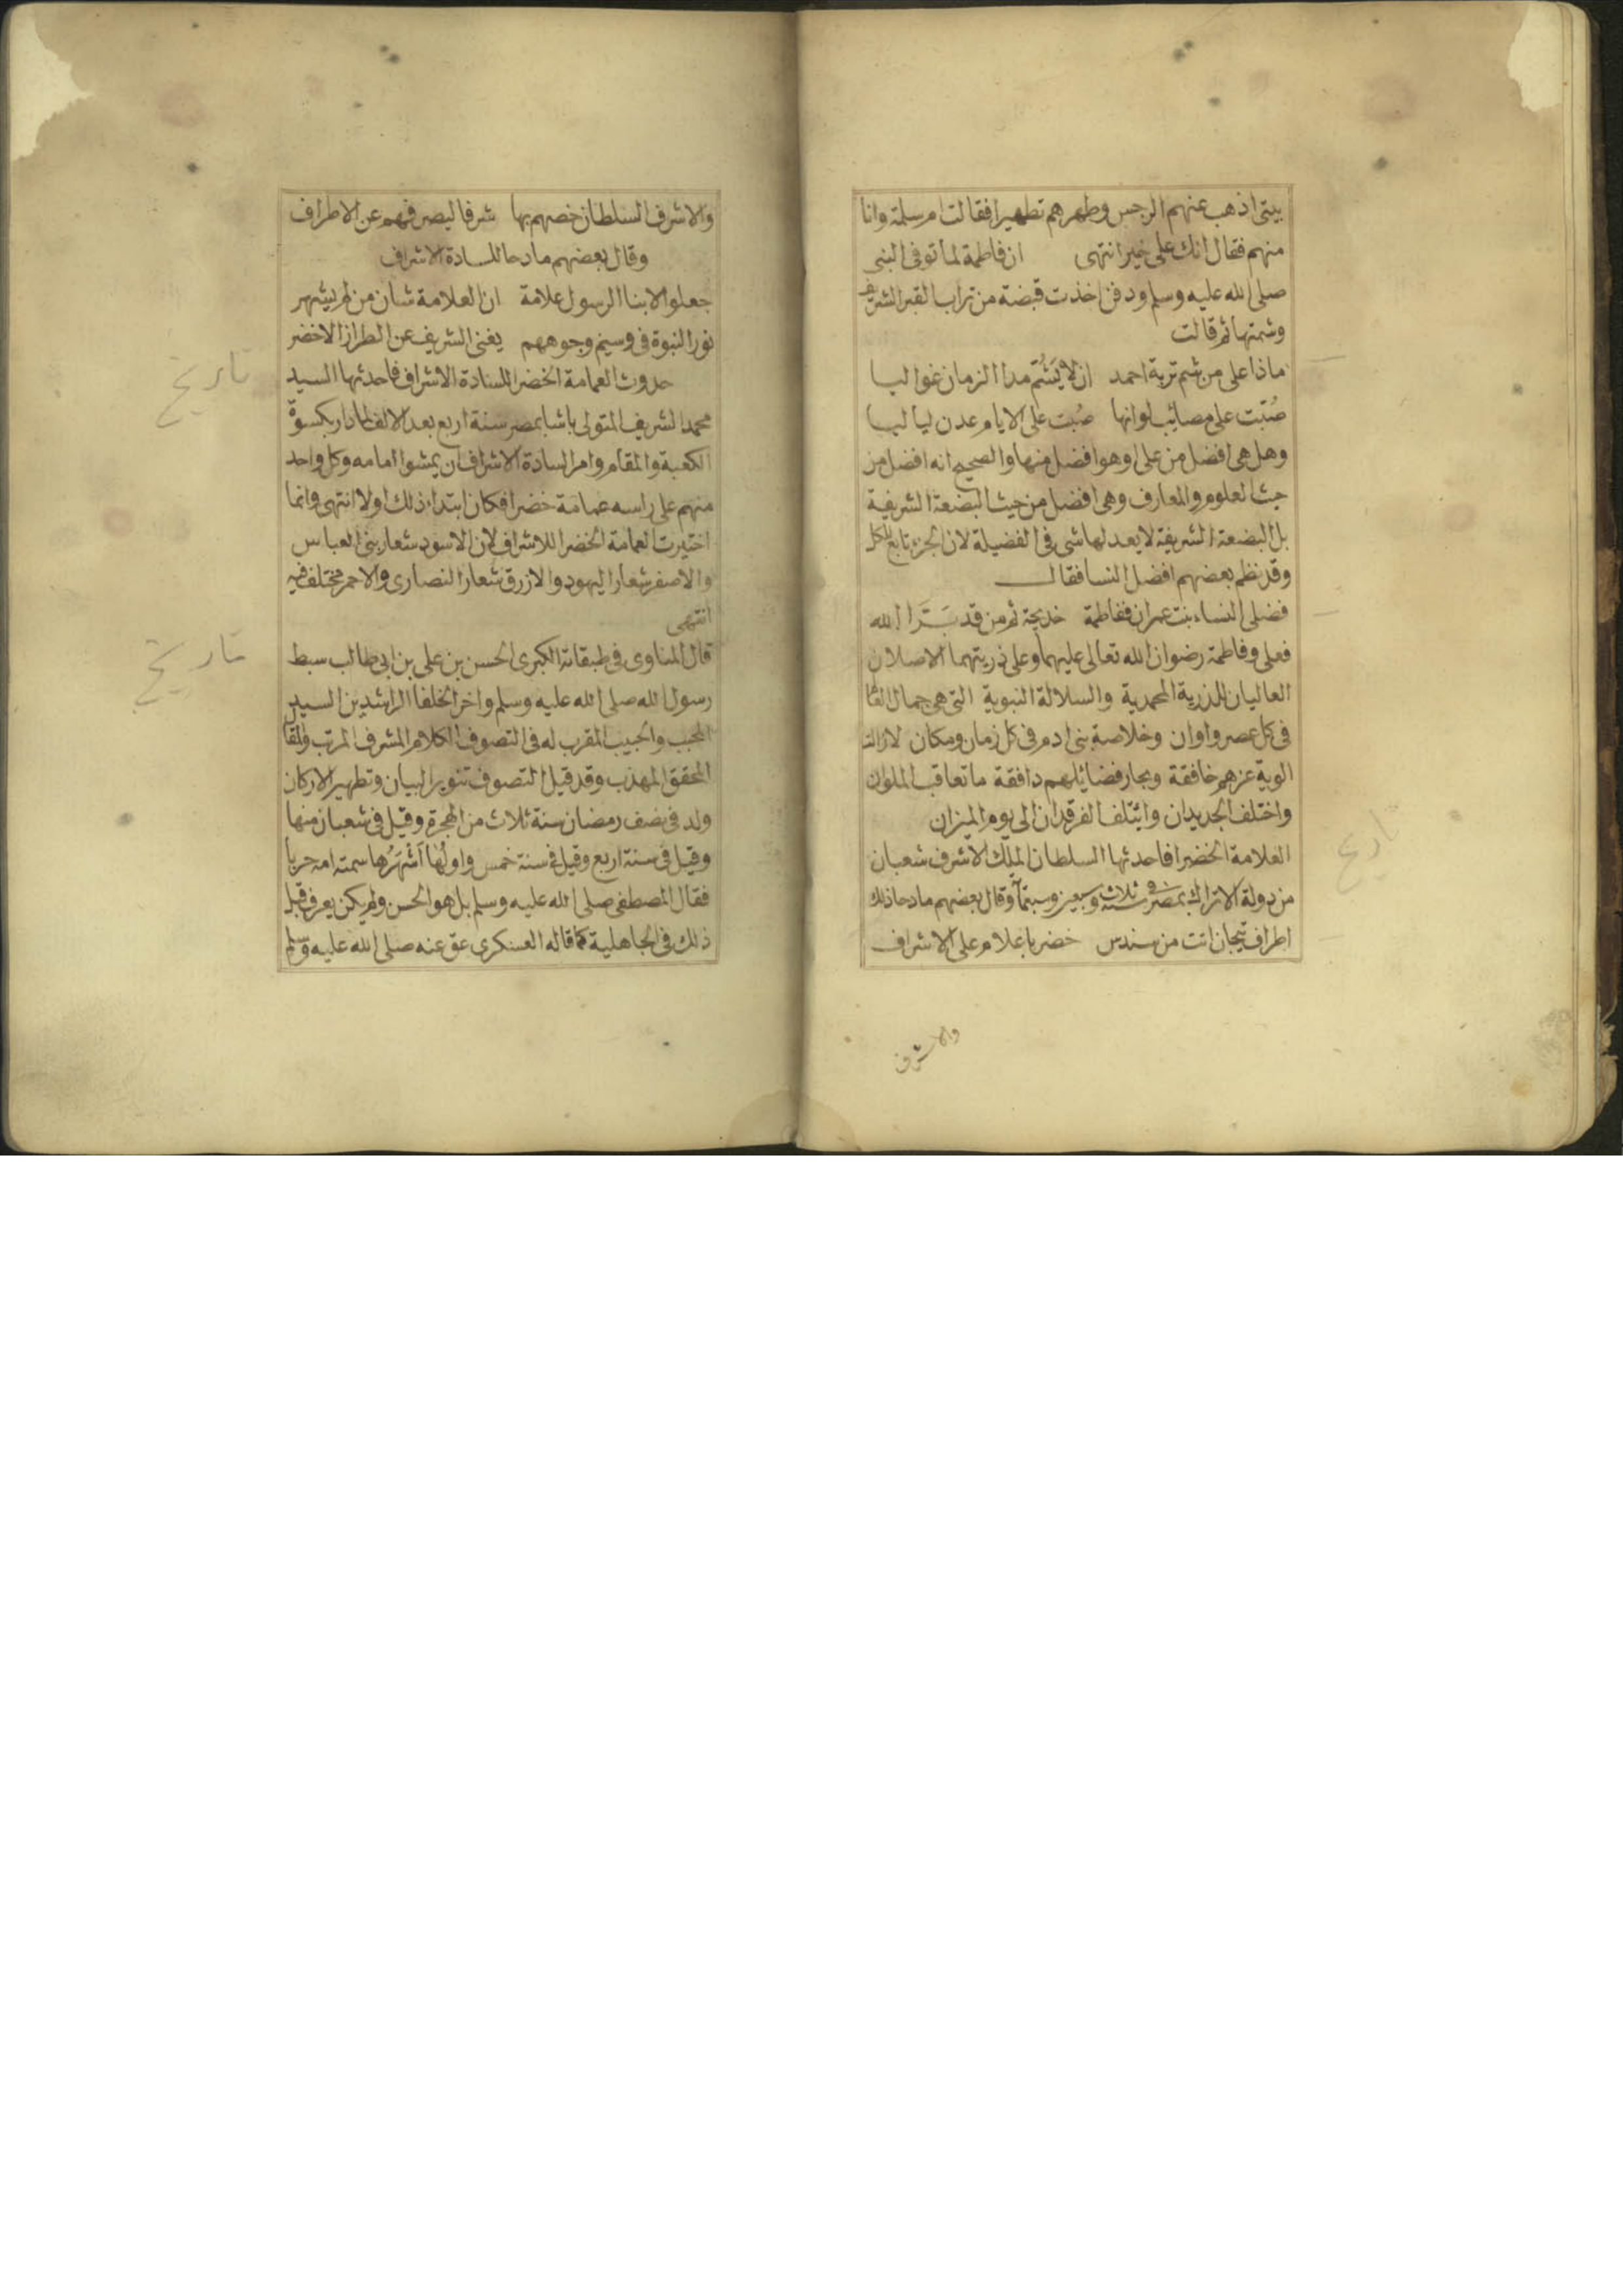 بيتى اذهب عنهم الرجس وطهرهم تطهيرا فقالت ام سلمة وانا
منهم فقال انك على خير انتهى ان فاطمة لما توفى النبى
صلى الله عليه وسلم ودفن اخذت قبضة من تراب القبر الشريف
وشمتها ثم قالت
ماذا على من شم تربة احمد ان لا يَشُمّ مدا الزمان غواليا
صُبّت على مصائب لو انها صُبت على الايام عدن لياليا
وهل هى افضل من على او هو افضل منها والصحيح انه افضل من
حيث العلوم والمعارف وهى افضل من حيث البضعة الشريفة
بل البضعة الشريفة لا يعد لها شى فى الفضيلة لان الجزء تابع للكل
وقد نظم بعضهم افضل النسا فقال
فضلى النساء بنت عمران ففاطمة خديجة ثم من قد بَرَّا الله
فعلى وفاطمة رضوان الله تعالى عليهما وعلى ذريتهما الاصلان
العاليان للذرية المحمدية والسلالة النبوية التى هى جمال
فى كل عصر واوان وخلاصة بنى ادم فى كل زمان ومكان لازالت
الوية عزهم خافقة وبحار فضايلهم دافقة ما تعاقب الملوان
واختلف الجديدان وايتلف الفرقدان الى يوم الميزان
العلامة الخضرا فاحدثها السلطان الملك الاشرف شعبان
من دولة الاتراك بمصر فى سنة ثلاث وسبعين وسبعمآ وقال بعضهم مادحا ذلك
اطراف تيجان اتت من سندس خضر باعلام على الاشراف
والاشرف
والاشرف السلطان خصهم بها شرفا ليصرفهم عن الاطراف
وقال بعضهم مادحا للسادة الاشراف
جعلوا لابنا الرسول علامة ان العلامة شان من لم يشهر
نور النبوة فى وسيم وجوههم يغنى الشريف عن الطراز الاخضر
حدوث العمامة الخضرا للسادة الاشراف فاحدثها السيد
تاريخ
محمد الشريف المتولى باشا بمصر سنة اربع بعد الالف لما دار بكسوة
الكعبة والمقام وامر السادة الاشراف ان يمشوا امامه وكل واحد
منهم على راسه عمامة خضرا فكان ابتداء ذلك اولا انتهى وانما
اختيرت العمامة الخضرا للاشراف لان الاسود شعار بنى العباس
والاصفر شعار اليهود والازرق شعار النصارى والاحمر مختلف فيه
انتهى
قال المناوى فى طبقاته الكبرى الحسن بن على بن ابى طالب سبط
تاريخ
رسول الله صلى الله عليه وسلم واخر الخلفا الراشدين السيد
المحبب والحبيب المقرب له فى التصوف الكلام المشرف المرتب والمقا
المحقق المهذب وقد قيل التصوف تنوير البيان وتطهير الاركان
ولد فى نصف رمضان سنة ثلاث من الهجرة وقيل فى شعبان منها
وقيل فى سنة اربع وقيل فى سنة خمس واولُها اَشْهَرُها سمته امه حربا
فقال المصطفى صلى الله عليه وسلم بل هو الحسن ولم يكن يعرف قبل
ذلك فى الجاهلية كما قاله العسكرى عق عنه صلى الله عليه وسلم